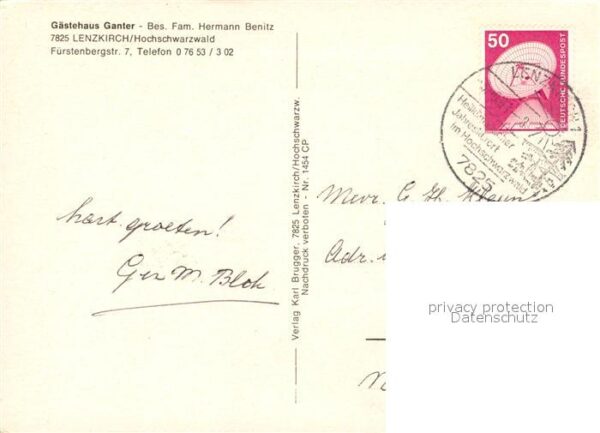 Gästehaus Ganter - Bes. Fam. Hermann Benitz
7825 LENZKIRCH/Hochschwarzwald
Fürstenbergstr. 7, Telefon 0 76 53 / 3 02
50
DEUTSCHE BUNDESPOST
LENZ
Heilklimatischer
Jahreskurort
im Hochschwarzwald
7825
Verlag Karl Brugger, 7825 Lenzkirch/Hochschwarzw.
Nachdruck verboten / Nr. 1454 CP
hart. groeten!
Ger M. Blok
Mevr. G. H.
Adr.
privacy protection
Datenschutz